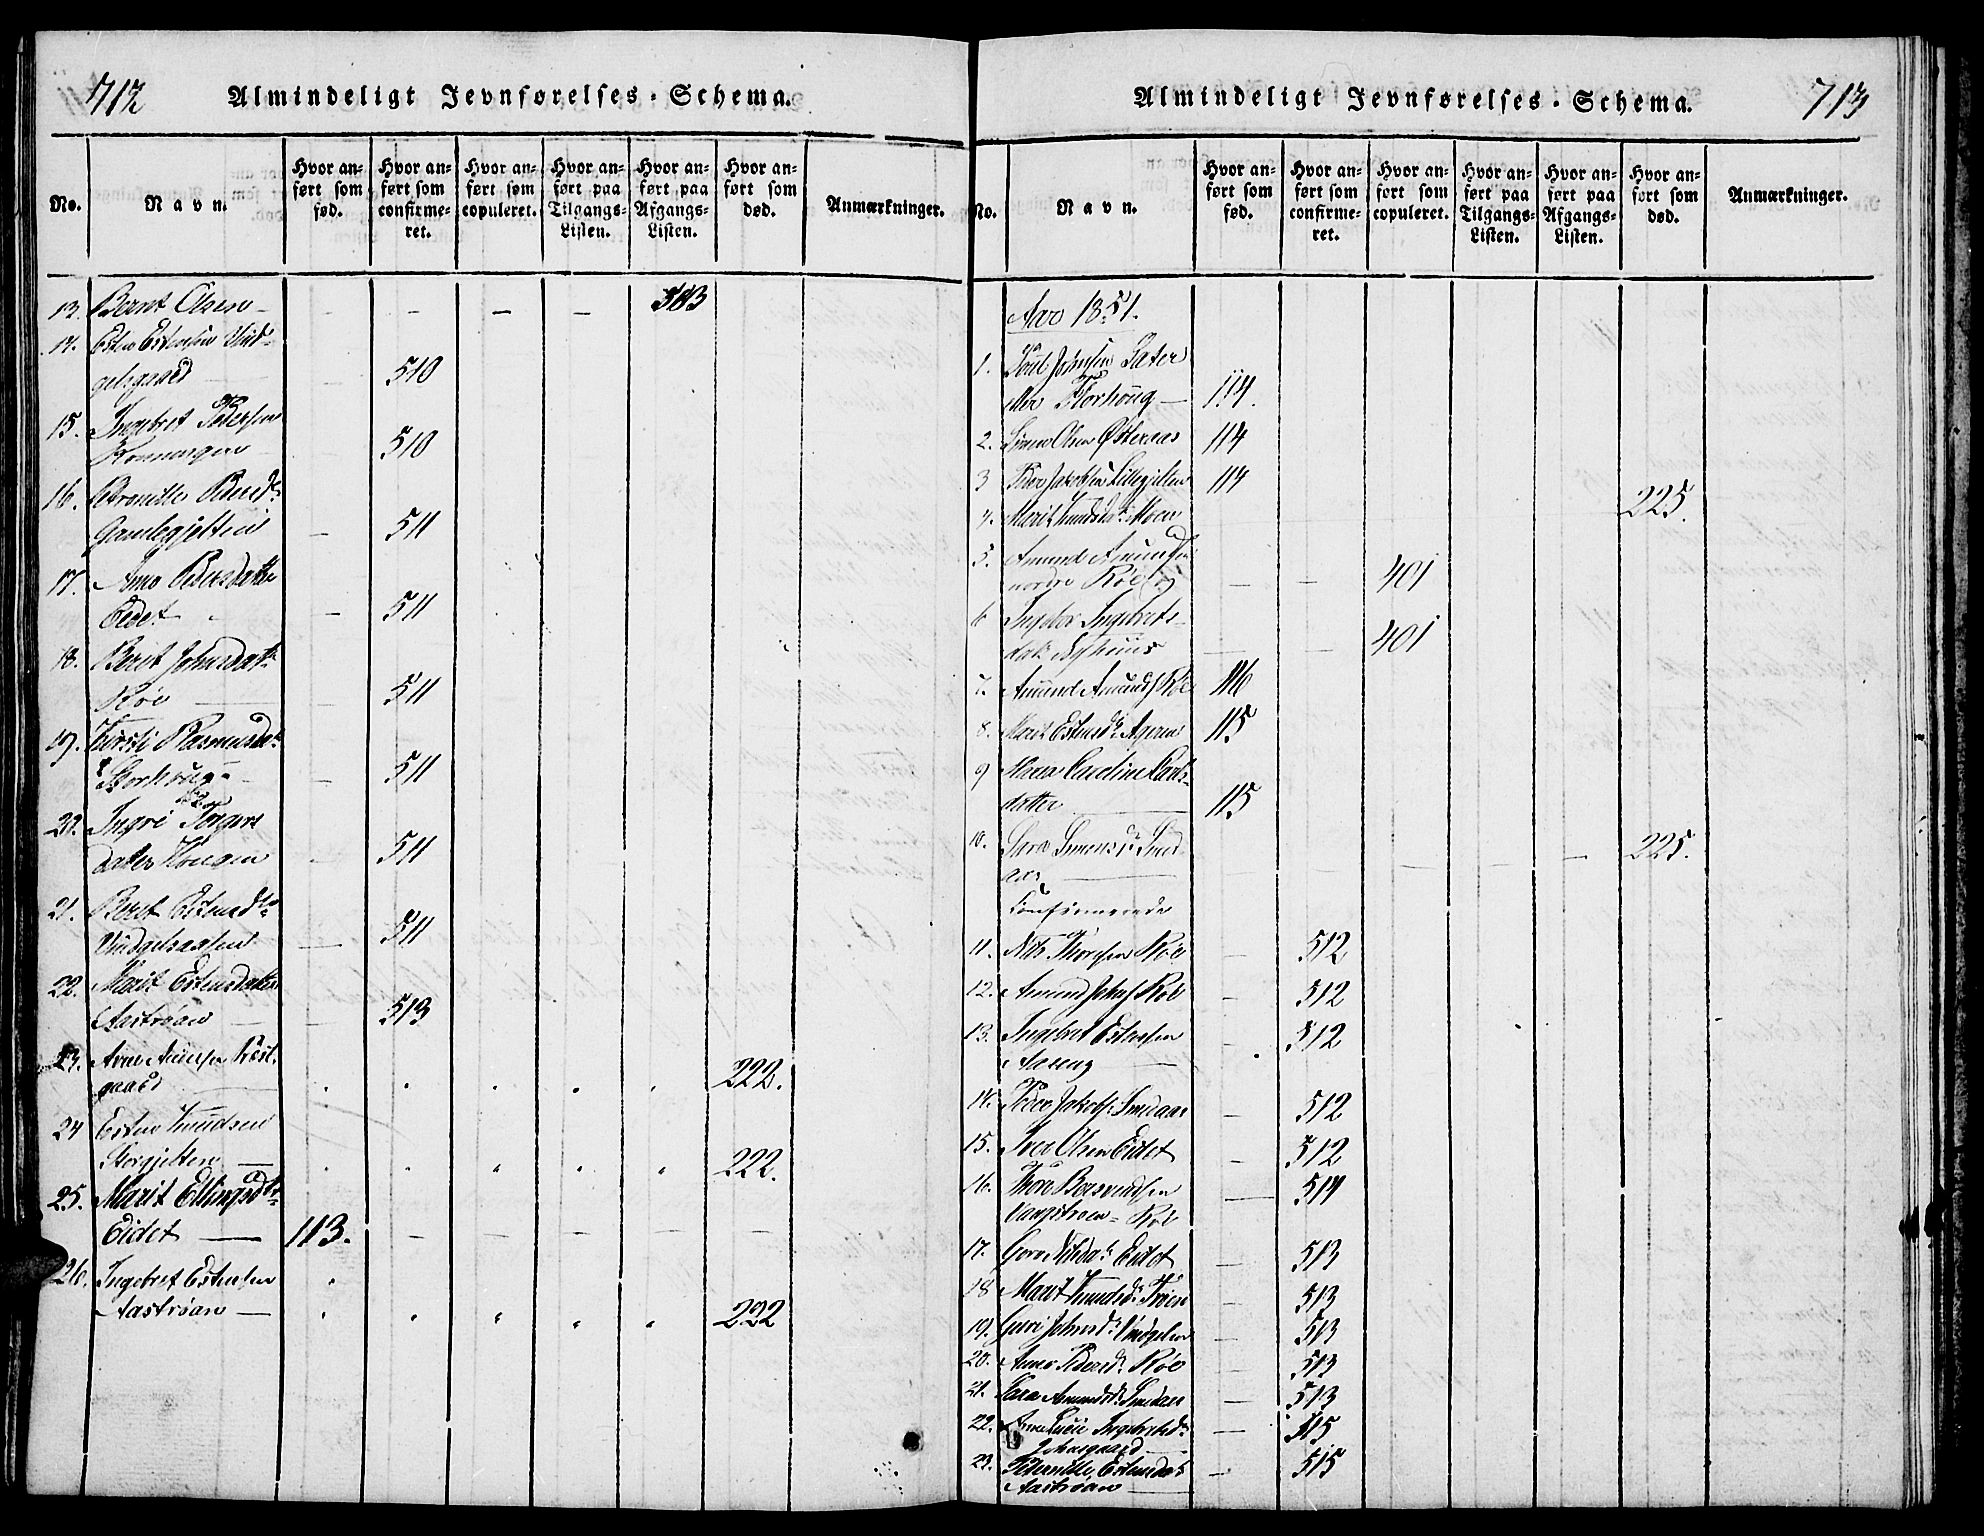 712
Almindeligt Jevnførelses-Schema.
No.
Navn.
Hvor anført som født.
Hvor anført som confirmeret.
Hvor anført som copuleret.
Hvor anført paa Tilgangs-Listen.
Hvor anført paa Afgangs-Listen.
Hvor anført som død.
Anmærkninger.
13. Bernt Olsen - - - - - 583
14. Esten Estensen Vin-
gelsgaard - 510
15. Ingebret Pedersen
- 510
16. Petronille Pedersd.
Gamlegjelten - 511
17. Anne Pedersdatter
Eidet - 511
18. Berit Johnsdatr
Røe - 511
19. Kirsti Rasmusdr
Storhoug - 511
20. Ingri Torgers
datter Kroegen - 511
21. Beret Estensdtr
Vingelsaasen - 511
22. Marit Estensdatter
Aastrøan - 513
23. Arne Arnesen Røst-
gaard 222.
24 Esten Knudsen
Storgjelten 222.
25. Marit Ellingsdtr
Eidet 113. - - - - -
26. Ingebret Estensen
Aastrøan 222
713
Almindeligt Jevnførelses-Schema.
No.
Navn.
Hvor anført som fød.
Hvor anført som confirmeret.
Hvor anført som copuleret.
Hvor anført paa Tilgangs-Listen.
Hvor anført paa Afgangs-Listen.
Hvor anført som død.
Anmærkninger.
Aar 1851.
1. Poul Johnsen Sæter
eller Storhoug 114.
2. Simen Olsen Østeraas 114
3 Peder Jakobsen Lillegjelten 114
4. Marit Knudsdr Moen 225.
5. Amund Amundsen
nordre Røe - - 401
6 Ingebor Ingebrets-
datr Nyhuus - - 401
7. Amund Amunds. Røe 116
8. Marit Estensdr Ageren 115
9 Maren Caroline Carls-
datter 115
10. Sara Simensdr Smed-
aas 225.
Confirmerede
11. Nils Thoresen Røe - 512
12. Amund Johns. Røe - 512
13. Ingebret Estensen
Aaseng - 512
14. Peder Jakobs. Smedaas - 512
15. Iver Olsen Eidet - 512
16. Thore Bersvendsen
Langstroen Røe - 514
17. Goro Nilsdatr Eidet - 513
18 Marit Knudsdr Trøen 513
19. Guri Johnsdr Vingelen - 513
20. Anne Pedersdr Røe - 513
21. Sara Amundsdr Smedaas - 513
22. Ane Lucie Ingebretsdr
Johnsgaard - 515
23. Peternille Estensdatr
Aastrøan - 515